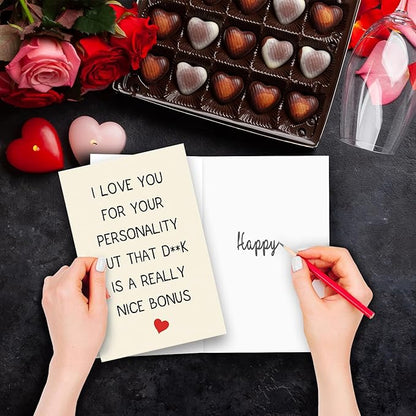 I LOVE YOU
FOR YOUR
PERSONALITY
BUT THAT D**K
IS A REALLY
NICE BONUS
Happy